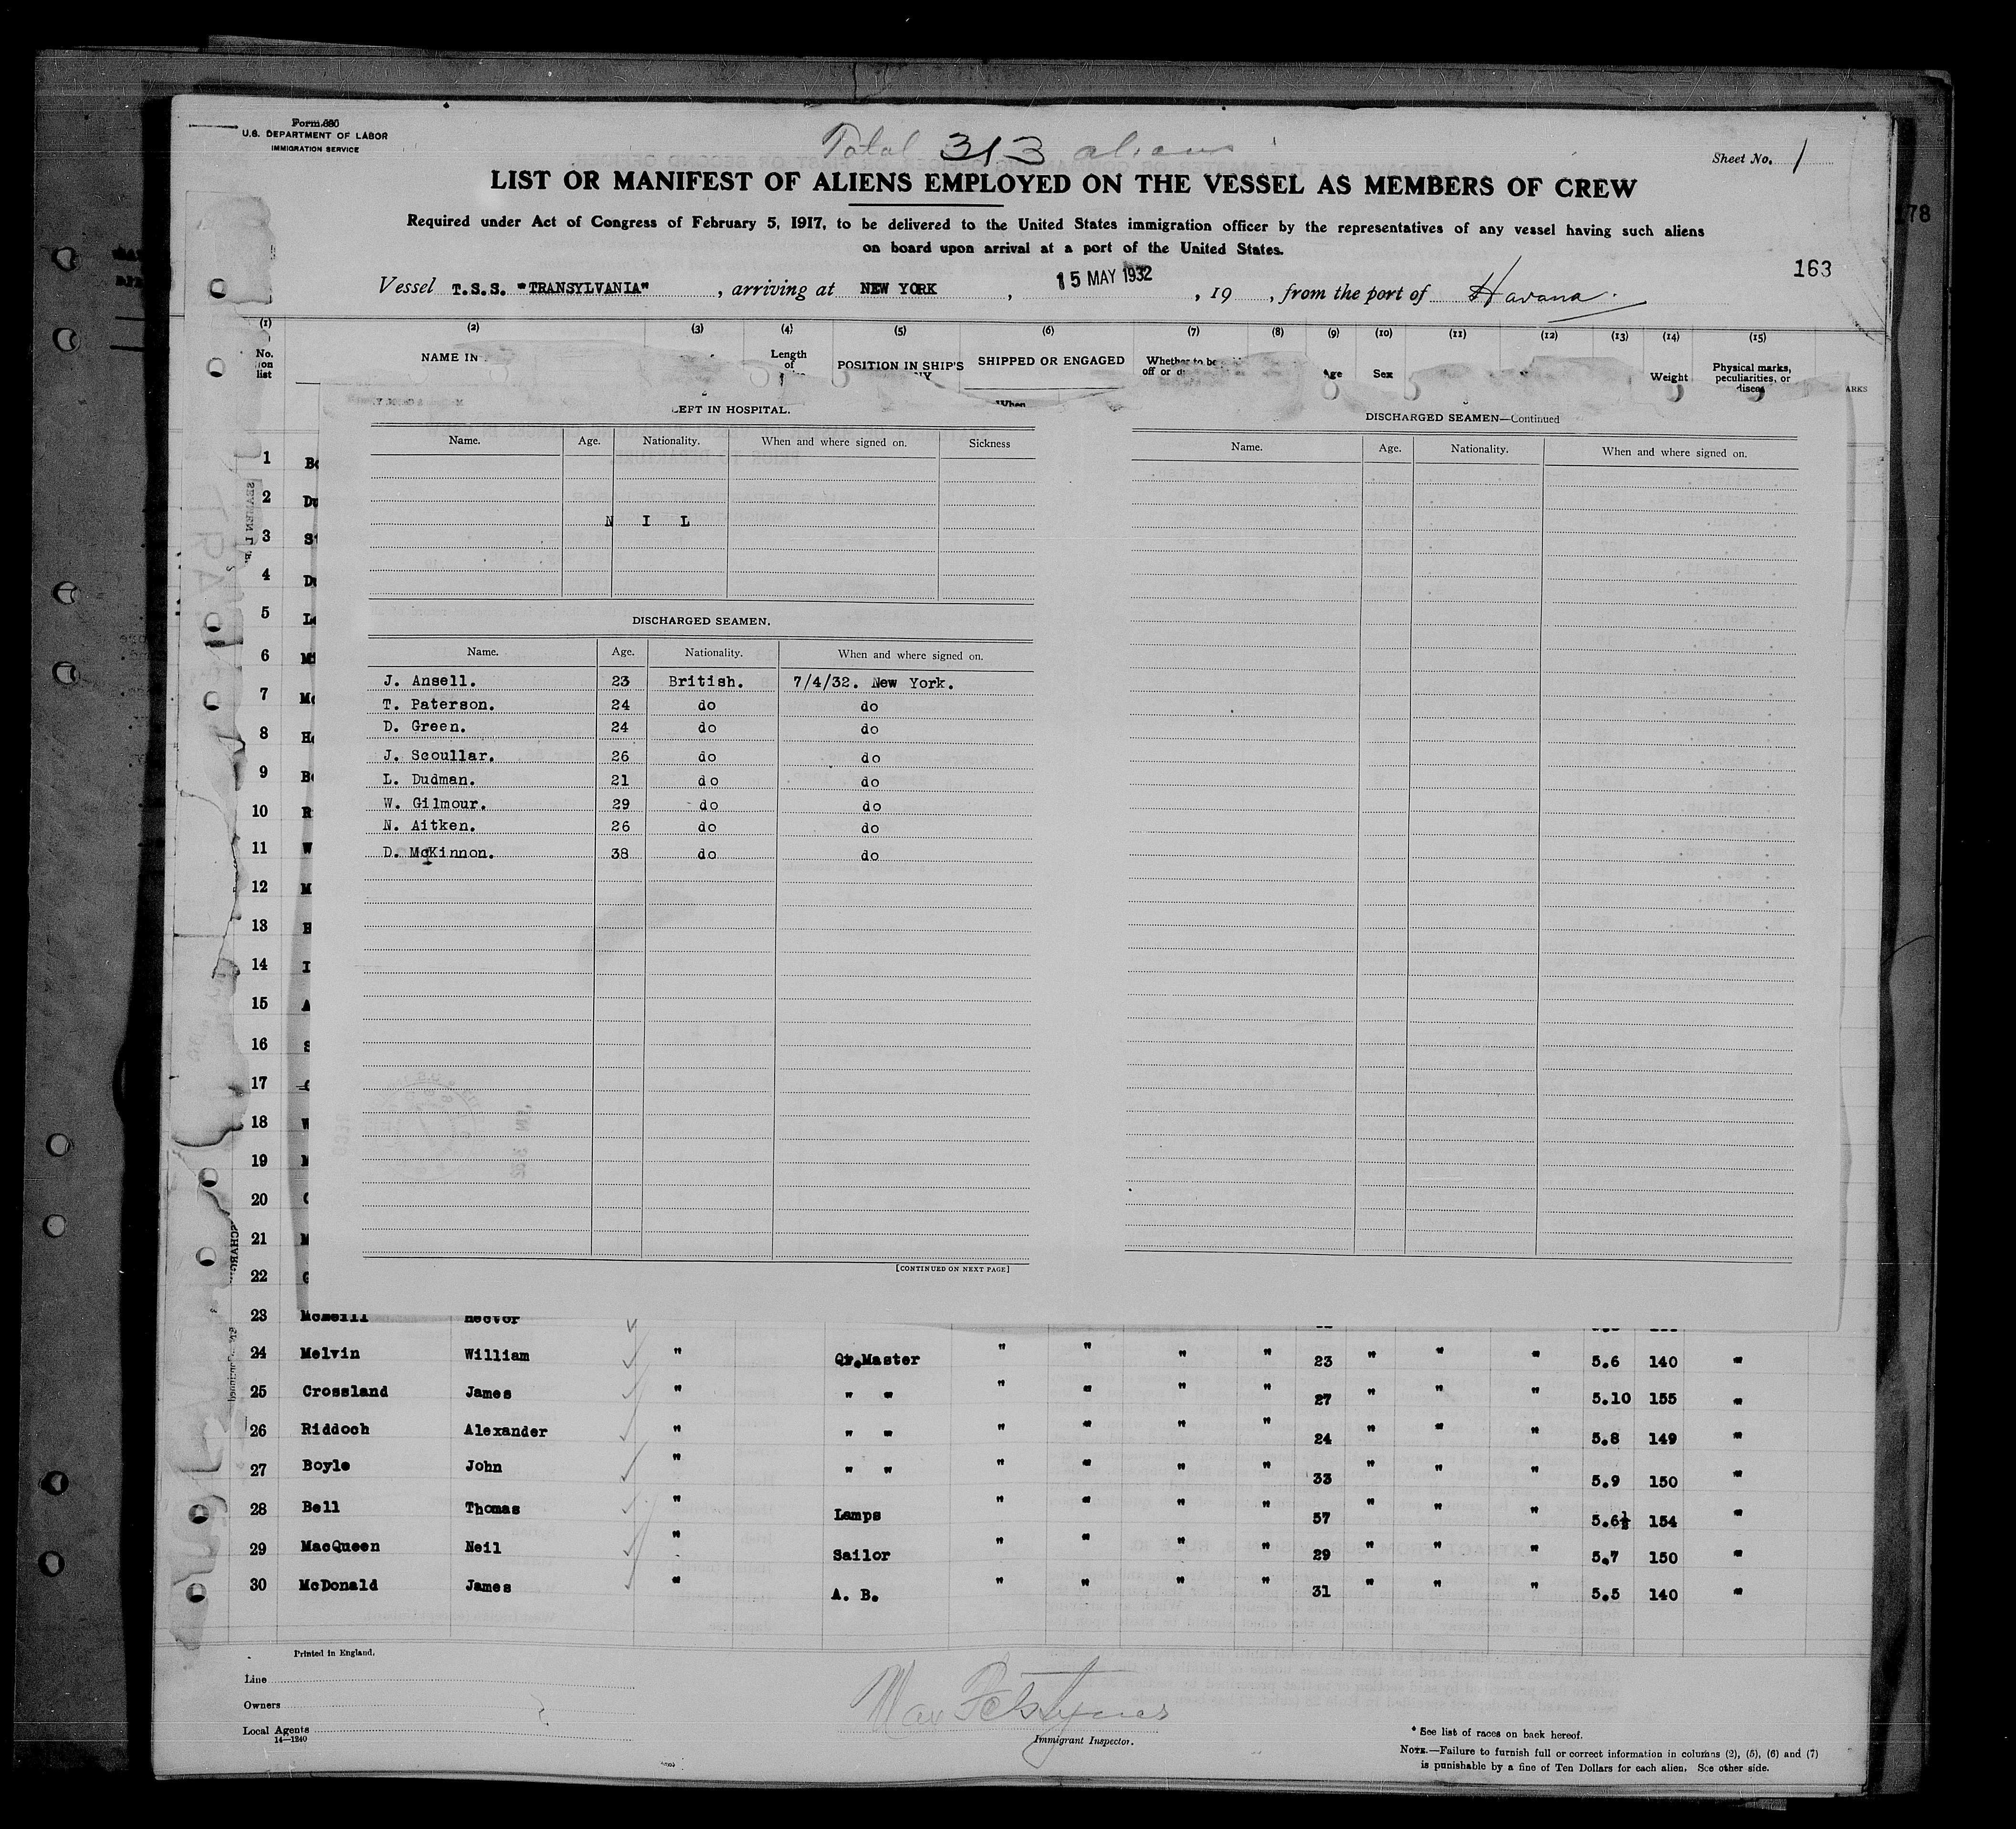 Form 680
U.S. DEPARTMENT OF LABOR
IMMIGRATION SERVICE
Total 313 aliens
Sheet No. 1
LIST OR MANIFEST OF ALIENS EMPLOYED ON THE VESSEL AS MEMBERS OF CREW
Required under Act of Congress of February 5, 1917, to be delivered to the United States immigration officer by the representatives of any vessel having such aliens
on board upon arrival at a port of the United States.
78
163
Vessel T.S.S. "TRANSYLVANIA", arriving at NEW YORK, 15 MAY 1932, 19 , from the port of Havana.
(1) (2) (3) (4) (5) (6) (7) (8) (9) (10) (11) (12) (13) (14) (15)
No. on list NAME IN Length of POSITION IN SHIP'S SHIPPED OR ENGAGED Whether to be off or Age Sex Weight Physical marks, peculiarities, or
When
LEFT IN HOSPITAL.
Name. Age. Nationality. When and where signed on. Sickness
N I L
DISCHARGED SEAMEN.
Name. Age. Nationality. When and where signed on.
J. Ansell. 23 British. 7/4/32. New York.
T. Paterson. 24 do do
D. Green. 24 do do
J. Scoullar. 26 do do
L. Dudman. 21 do do
W. Gilmour. 29 do do
N. Aitken. 26 do do
D. McKinnon. 38 do do
[CONTINUED ON NEXT PAGE]
DISCHARGED SEAMEN—Continued
Name. Age. Nationality. When and where signed on.
1
2
3
4
5
6
7
8
9
10
11
12
13
14
15
16
17
18
19
20
21
22
23 McNeill Hector
24 Melvin William " Qr.Master " " " " 23 " " " 5.6 140 "
25 Crossland James " " " " " " " 27 " " " 5.10 155 "
26 Riddoch Alexander " " " " " " " 24 " " " 5.8 149 "
27 Boyle John " " " " " " " 33 " " " 5.9 150 "
28 Bell Thomas " Lamps " " " " 57 " " " 5.6½ 154 "
29 MacQueen Neil " Sailor " " " " 29 " " " 5.7 150 "
30 McDonald James " A. B. " " " " 31 " " " 5.5 140 "
Printed in England.
Line
Owners
Local Agents
14—1240
Immigrant Inspector.
* See list of races on back hereof.
NOTE.—Failure to furnish full or correct information in columns (2), (5), (6) and (7)
is punishable by a fine of Ten Dollars for each alien. See other side.